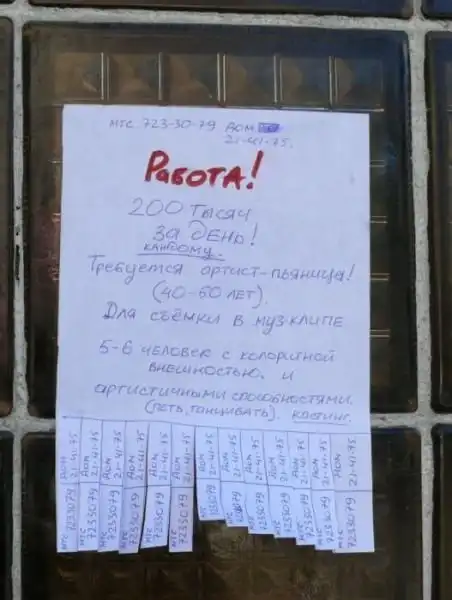 МТС 723-30-79 ДОМ
21-41-75.
РАБОТА!
200 ТЫСЯЧ
ЗА ДЕНЬ!
КАЖДОМУ.
Требуется артист-пьяница!
(40-60 ЛЕТ).
Для съёмки в муз.клипе
5-6 человек с колоритной
внешностью. и
артистичными способностями.
(петь, танцивать). кастинг.
МТС 7233079 ДОМ 21-41-75
МТС 7233079 ДОМ 21-41-75
МТС 7233079 ДОМ 21-41-75
МТС 7233079 ДОМ 21-41-75
МТС 7233079 ДОМ 21-41-75
МТС 7233079 ДОМ 21-41-75
МТС 7233079 ДОМ 21-41-75
МТС 7233079 ДОМ 21-41-75
МТС 7233079 ДОМ 21-41-75
МТС 7233079 ДОМ 21-41-75
МТС 7233079 ДОМ 21-41-75
МТС 7233079 ДОМ 21-41-75
МТС 7233079 ДОМ 21-41-75